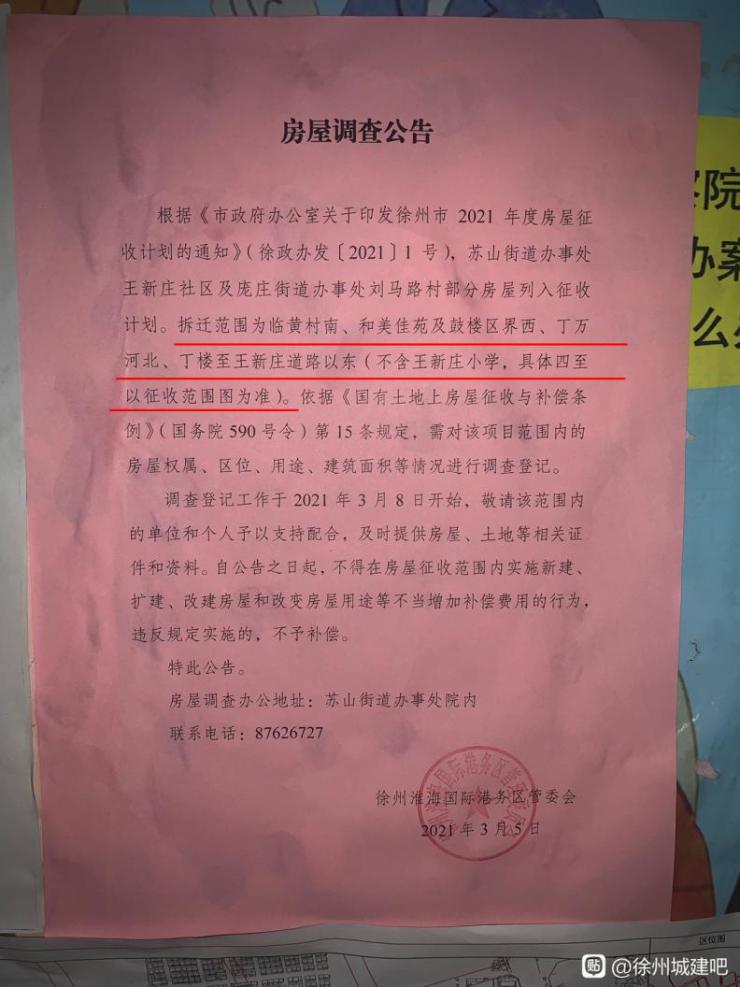 房屋调查公告
根据《市政府办公室关于印发徐州市 2021 年度房屋征
收计划的通知》（徐政办发〔2021〕1 号），苏山街道办事处
王新庄社区及庞庄街道办事处刘马路村部分房屋列入征收
计划。拆迁范围为临黄村南、和美佳苑及鼓楼区界西、丁万
河北、丁楼至王新庄道路以东（不含王新庄小学，具体四至
以征收范围图为准）。依据《国有土地上房屋征收与补偿条
例》（国务院 590 号令）第 15 条规定，需对该项目范围内的
房屋权属、区位、用途、建筑面积等情况进行调查登记。
调查登记工作于 2021 年 3 月 8 日开始，敬请该范围内
的单位和个人予以支持配合，及时提供房屋、土地等相关证
件和资料。自公告之日起，不得在房屋征收范围内实施新建、
扩建、改建房屋和改变房屋用途等不当增加补偿费用的行为，
违反规定实施的，不予补偿。
特此公告。
房屋调查办公地址：苏山街道办事处院内
联系电话：87626727
徐州淮海国际港务区管委会
2021 年 3 月 5 日
院
办案
么
区位图
贴 @徐州城建吧